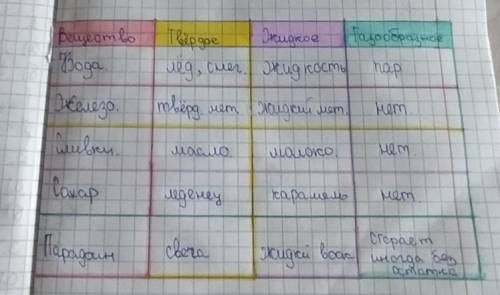 Вещество Твёрдое Жидкое Газообразное
Вода лёд, снег. жидкость пар
Железо. твёрд. мет. жидкий мет. нет.
Сливки. масло. молоко. нет.
Сахар леденец карамель нет.
Парафин свеча жидкий воск сгорает
иногда без
остатка